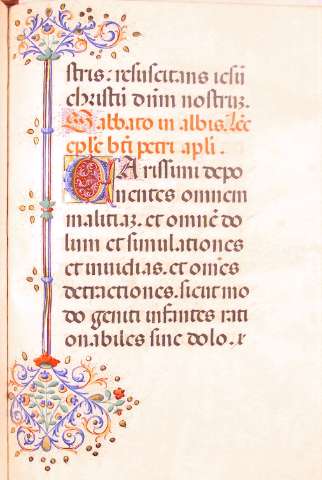 stris: resuscitans iesu
christu dnm nostruz.
Sabbato in albis. Lec
epsle bti petri apli.
Carissimi depo
nentes omnem
malitiaz. et omne do
lum et simulationes
et inuidias. et omes
detractiones. sicut mo
do geniti infantes rati
onabiles sine dolo. x